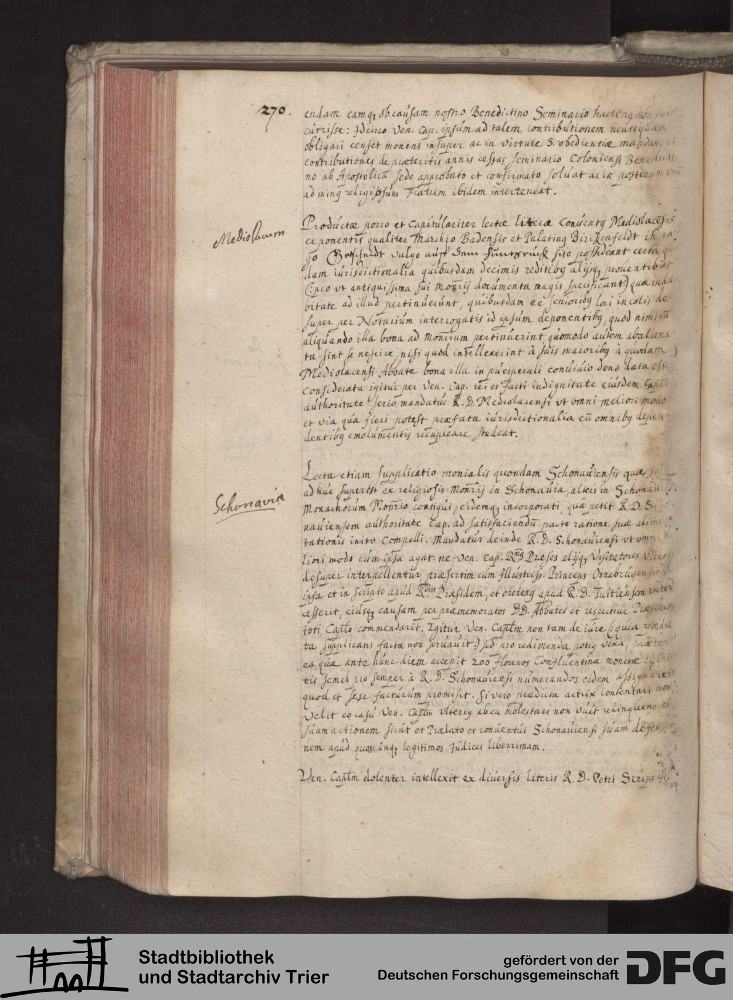 270.
endam eamq; ob causam nostro Benedictino Seminario hacteng non
currisse: Idcirco Ven. Cap. ipsum ad talem contributionem neutiquam
obligari censet monens insuper ac in virtute S. obedientiæ mandans
contributiones de præteritis annis cessas Seminario Coloniensi Benedicti
no ab Apostolica Sede approbato et confirmato soluat ac in posterum
ad ming religiosum Fratrem ibidem interteneat.
Mediolacum
Productæ porro et Capitulariter lectæ literæ Conventq Mediolacensis
exponentis qualiter Marchio Badensis et Palating Birckenfeldt in
go vulgo auff dem Huntzrück sito possideant certa
dam iurisdictionalia quibusdam decimis reditibq alijsq; prouentibus
(: pro vt antiquissima sui Monrij documenta magis specificant:) quæ
bitate ad illud pertinuerunt, quibusdam ex senioribq loci incolis de
super per Notarium interrogatis id ipsum deponentibq, quod nimirum
aliquando illa bona ad Monrium pertinuerint quomodo autem abaliena
ta sint se nescire, nisi quod intellexerint à suis maioribq à quodam
Mediolacensi Abbate bona illa in principali conuiuio dono data esse
Considerata igitur per Ven. Cap. rei et facti indignitate eiusdem Capli
authoritate serio mandatur R. D. Mediolacensi vt omni meliori modo
et via qua fieri potest præfata iurisdictionalia cū omnibq depen
dentibq emolumentis recuperare studeat.
Schonavia
Lecta etiam supplicatio monialis quondam Schonauiensis quæ
adhuc superest ex religiosis Monrij in Schonauia, alteri in Schonau
Monachorum Monrio contigui, eidemq; incorporati, qua petit R. D. Scho
nauiensem authoritate Cap. ad satisfaciendū pacto ratione suæ alimen
tationis inito Compelli. Mandatur deinde R. D. Schonauiensi vt omni
liori modo cum ipsa agat ne Ven. Cap. Rmq Præses alijq; Visitatores vlterq
desuper interpellentur præsertim cum Illustriss. Princeps Osnabrugensis
ipsa et in scripto apud Rdum Præsidem, et oretenq apud R. D. Tuitiensem inter
cesserit, eiusq; causam per præmemoratos DD. Abbates et respectiue Præsiden
toti Caplo commendarit. Igitur Ven. Caplm non tam de iure (: quia
ta supplicans facta non seruauit:) sed pro redimenda potiq vexa, præter
ea quæ ante hunc diem accepit 200 florenos Confluentinæ monetæ
tis semel pro semper à R. D. Schonauiensi numerandos eidem assignauit
quod et sese facturum promisit. Si vero prædicta actrix consentari non
velit eo casu Ven. Caplm vlteriq ab ea molestari non vult relinquens ei
suam actionem sicut et Prælato et conuentui Schonauiensi suam defensio
nem apud quoscunq; legitimos Iudices liberrimam.
Ven. Caplm dolenter intellexit ex diuersis literis R. D. Petri
Stadtbibliothek
und Stadtarchiv Trier
gefördert von der
Deutschen Forschungsgemeinschaft
DFG